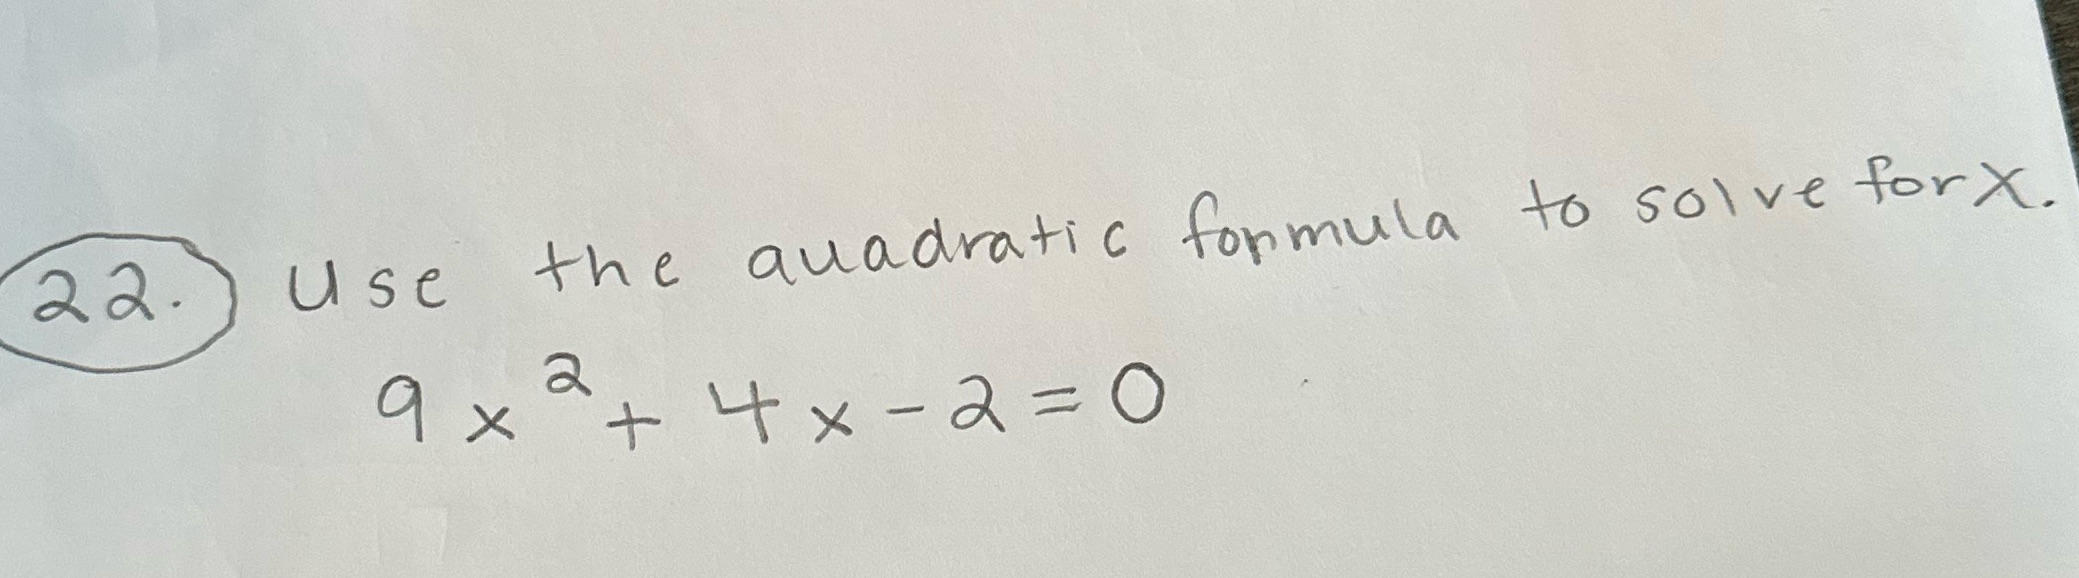 22. Use the quadratic formula to solve for x.
9x² + 4x - 2 = 0